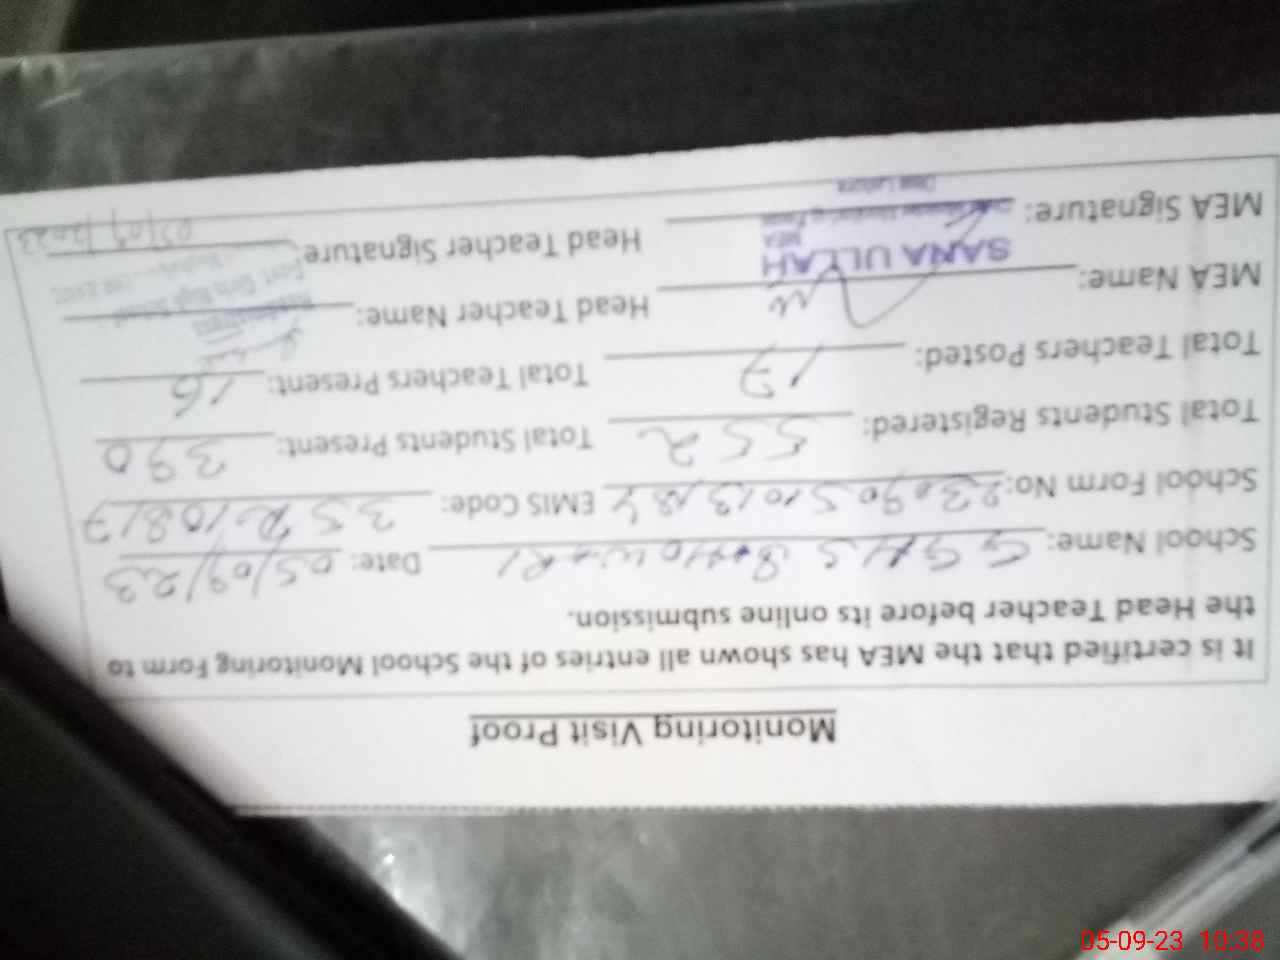 Monitoring Visit Proof
It is certified that the MEA has shown all entries of the School Monitoring Form to
the Head Teacher before its online submission.
School Name: GGHS Date: 05/09/23
School Form No: EMIS Code:
Total Students Registered: 552 Total Students Present: 390
Total Teachers Posted: 17 Total Teachers Present: 16
MEA Name: Head Teacher Name:
SANA ULLAH
MEA
MEA Signature: Head Teacher Signature:
05/09/2023
05-09-23 10:38